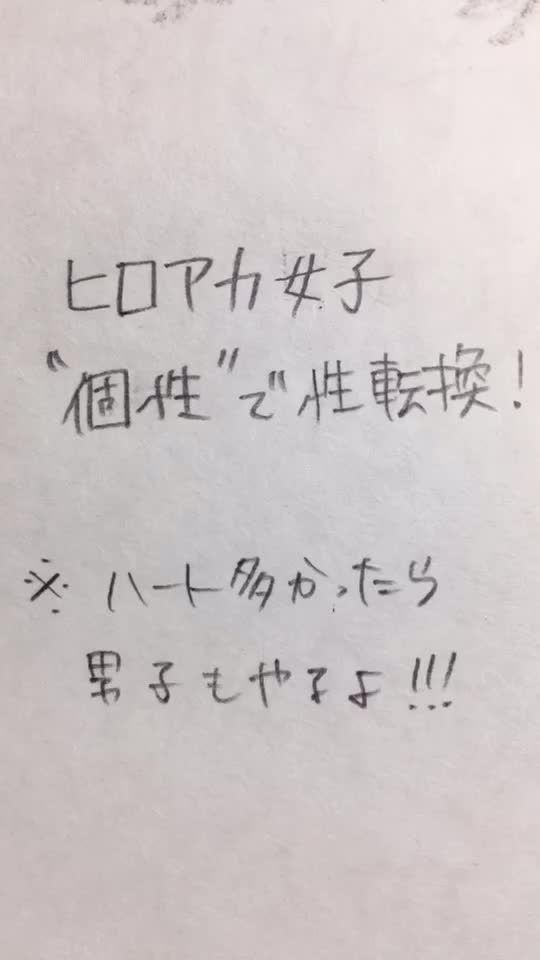 ヒロアカ女子
“個性”で性転換!
※ハート多かったら
男子もやるよ!!!